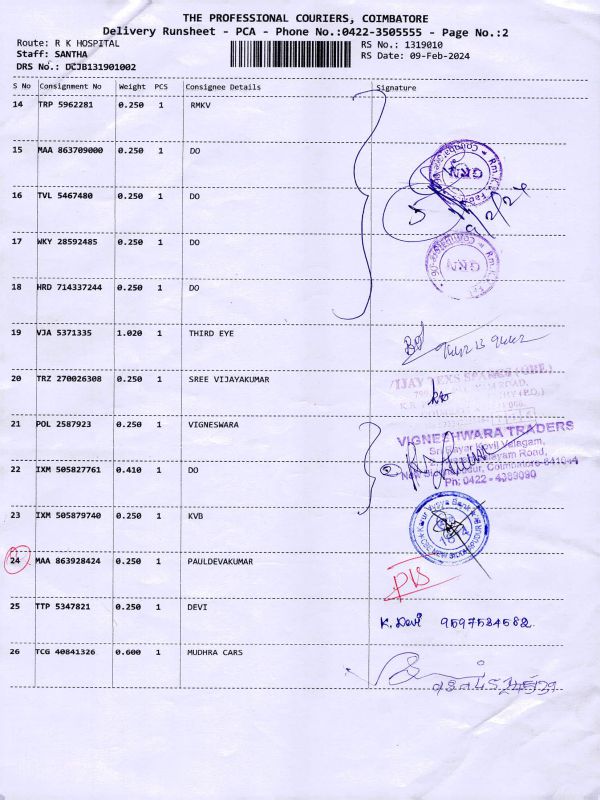 THE PROFESSIONAL COURIERS, COIMBATORE
Delivery Runsheet - PCA - Phone No.:0422-3505555 - Page No.:2
Route: R K HOSPITAL
RS No.: 1319010
Staff: SANTHA
RS Date: 09-Feb-2024
DRS No.: DCJB131901002
S No Consignment No Weight PCS Consignee Details Signature
14 TRP 5962281 0.250 1 RMKV
15 MAA 863709000 0.250 1 DO
16 TVL 5467480 0.250 1 DO
5
9/2/24
17 WKY 28592485 0.250 1 DO
GRN
18 HRD 714337244 0.250 1 DO
19 VJA 5371335 1.020 1 THIRD EYE
20 TRZ 270026308 0.250 1 SREE VIJAYAKUMAR
21 POL 2587923 0.250 1 VIGNESWARA
VIGNESHWARA TRADERS
22 IXM 505827761 0.410 1 DO
Ph: 0422 - 4383090
23 IXM 505879740 0.250 1 KVB
24 MAA 863928424 0.250 1 PAULDEVAKUMAR
25 TTP 5347821 0.250 1 DEVI
K. Devi 9597584582
26 TCG 40841326 0.600 1 MUDHRA CARS